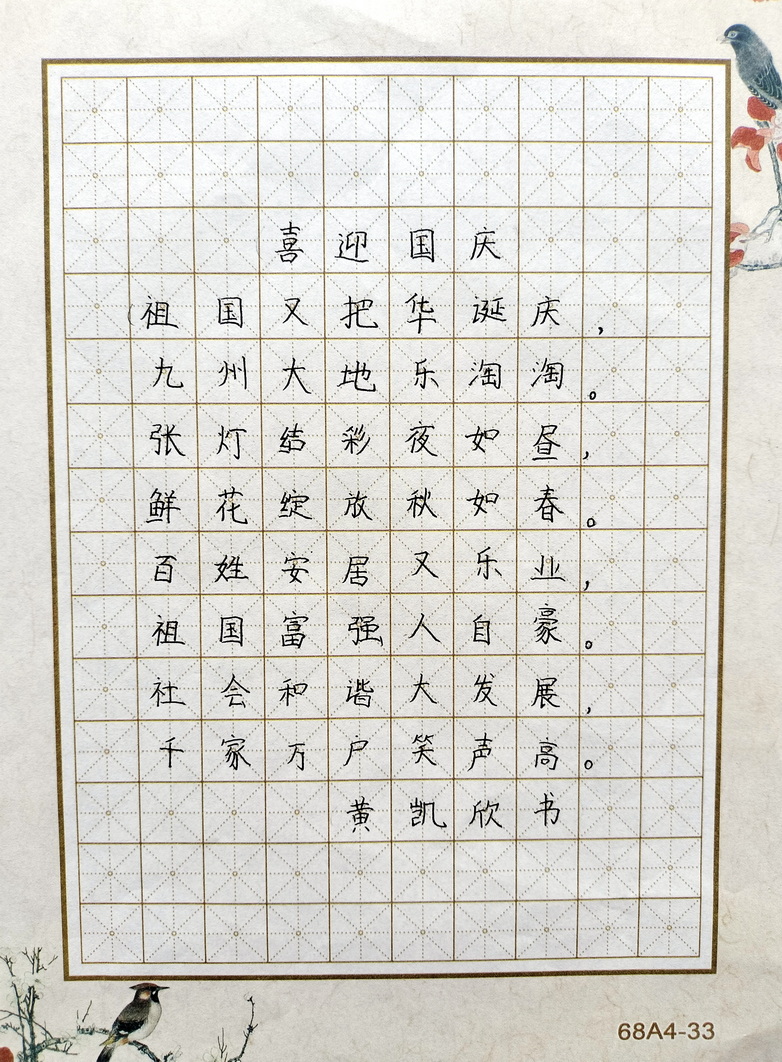 喜迎国庆
祖国又把华诞庆，
九州大地乐淘淘。
张灯结彩夜如昼，
鲜花绽放秋如春。
百姓安居又乐业，
祖国富强人自豪。
社会和谐大发展，
千家万户笑声高。
黄凯欣书
68A4-33